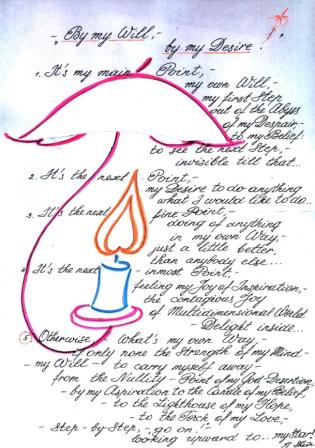 -„By my Will,-
by my Desire !"
1. It's my main Point,-
my own Will,-
my first Step
out of the Abyss
of my Despair
to my Belief
to see the next Step,-
invisible till that...
2. It's the next Point,-
my Desire to do anything
what I would like to do..
3. It's the next fine Point,-
doing of anything
in my own Way,-
just a little better,
than anybody else....
4. It's the next inmost Point.-
feeling my Joy of Inspiration,-
the contagious Joy
of Multidimensional World
- Delight inside...
5. Otherwise,- What's my own Way,-
if only none the Strength of my Mind-
- my Will - to carry myself away-
from the Nullity - Point of my God Desertion,
- by my Aspiration to the Candle of my Belief.
- to the Lighthouse of my Hope,
- to the Torch of my Love,-
- step-by-Step, - go on!"
Looking upward to... my Star!